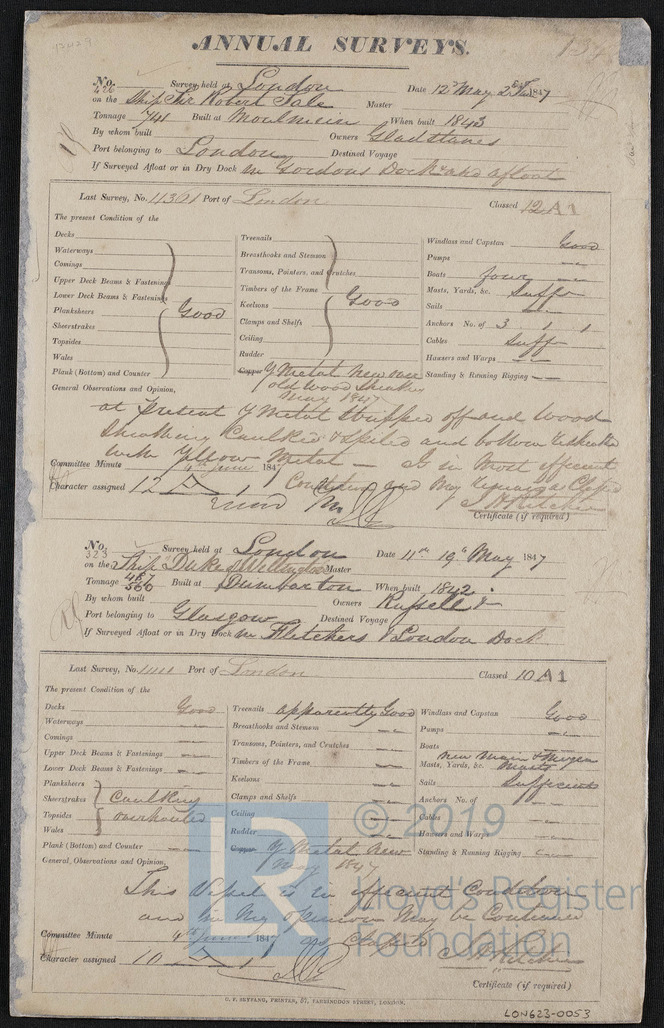 ANNUAL SURVEYS.
No. 476 Survey held at London Date 12th May 2nd June 1847
on the Ship Sir Robert Sale Master
Tonnage 741 Built at Moulmein When built 1843
By whom built Owners Gladstanes
Port belonging to London Destined Voyage
If Surveyed Afloat or in Dry Dock In Gordons Dock and afloat
Last Survey, No. 11361 Port of London Classed 12 A1
The present Condition of the
Decks
Waterways
Comings
Upper Deck Beams & Fastenings
Lower Deck Beams & Fastenings
Planksheers Good
Sheerstrakes
Topsides
Wales
Plank (Bottom) and Counter
Treenails
Breasthooks and Stemson
Transoms, Pointers, and Crutches
Timbers of the Frame
Keelsons Good
Clamps and Shelfs
Ceiling
Rudder
Copper Y Metal New over
old Wood Sheathg
May 1847
Windlass and Capstan Good
Pumps
Boats four
Masts, Yards, &c. Sufft
Sails
Anchors No. of 3 1 1
Cables Suff
Hawsers and Warps
Standing & Running Rigging
General Observations and Opinion,
at Present Y Metal Stripped off and Wood
Sheathing Caulked & and bottom
with Yellow Metal — Is in Most efficient
Condition and May remain as Classed
Committee Minute 4th June 1847
Character assigned 12 A 1
J H Ritchie
Certificate (if required)
No. 323 Survey held at London Date 11th 19th May 1847
on the Ship Duke of Wellington Master
Tonnage 487 560 Built at Dumbarton When built 1842
By whom built Owners Russell &
Port belonging to Glasgow Destined Voyage
If Surveyed Afloat or in Dry Dock in Fletchers & London Dock
Last Survey, No. Port of London Classed 10 A1
The present Condition of the
Decks Good
Waterways
Comings
Upper Deck Beams & Fastenings
Lower Deck Beams & Fastenings
Planksheers
Sheerstrakes Caulking
Topsides overhauled
Wales
Plank (Bottom) and Counter
Treenails apparently Good
Breasthooks and Stemson
Transoms, Pointers, and Crutches
Timbers of the Frame
Keelsons
Clamps and Shelfs
Ceiling
Rudder
Copper Y Metal New
May 1847
Windlass and Capstan Good
Pumps
Boats
New Main & Mizen
Masts, Yards, &c. Masts
Sails Sufficient
Anchors No. of
Cables
Hawsers and Warps
Standing & Running Rigging
General, Observations and Opinion,
This Vessel is in efficient Condition
and in My opinion May be Continued
as Classed
Committee Minute 4th June 1847
Character assigned 10 A 1
J H Ritchie
Certificate (if required)
C. F. SEYFANG, PRINTER, 57, FARRINGDON STREET, LONDON.
LON623-0053
© 2019
Lloyd's Register
Foundation